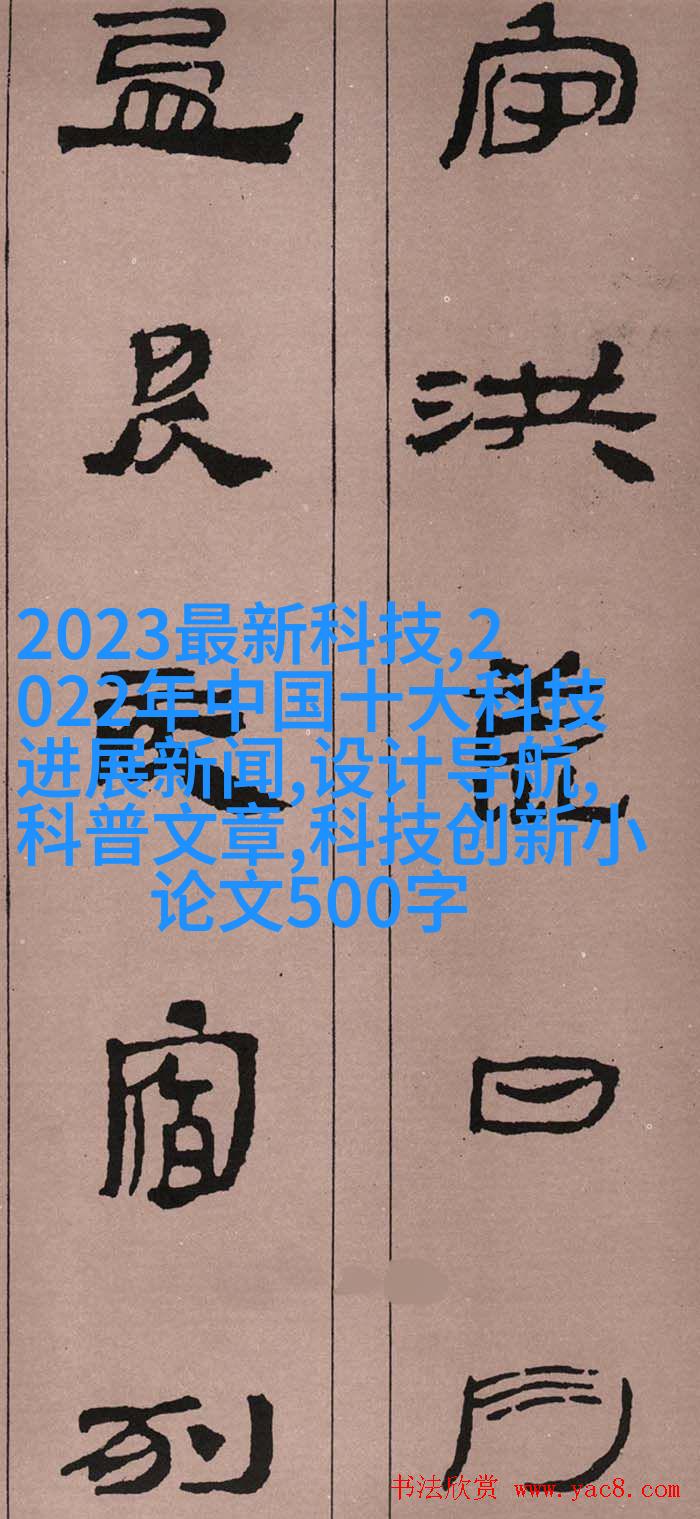 宙洪荒日月
盈昃辰宿列
2023最新科技,2
022年中国十大科技
进展新闻,设计导航,
科普文章,科技创新小
论文500字
书法欣赏 www.yac8.com